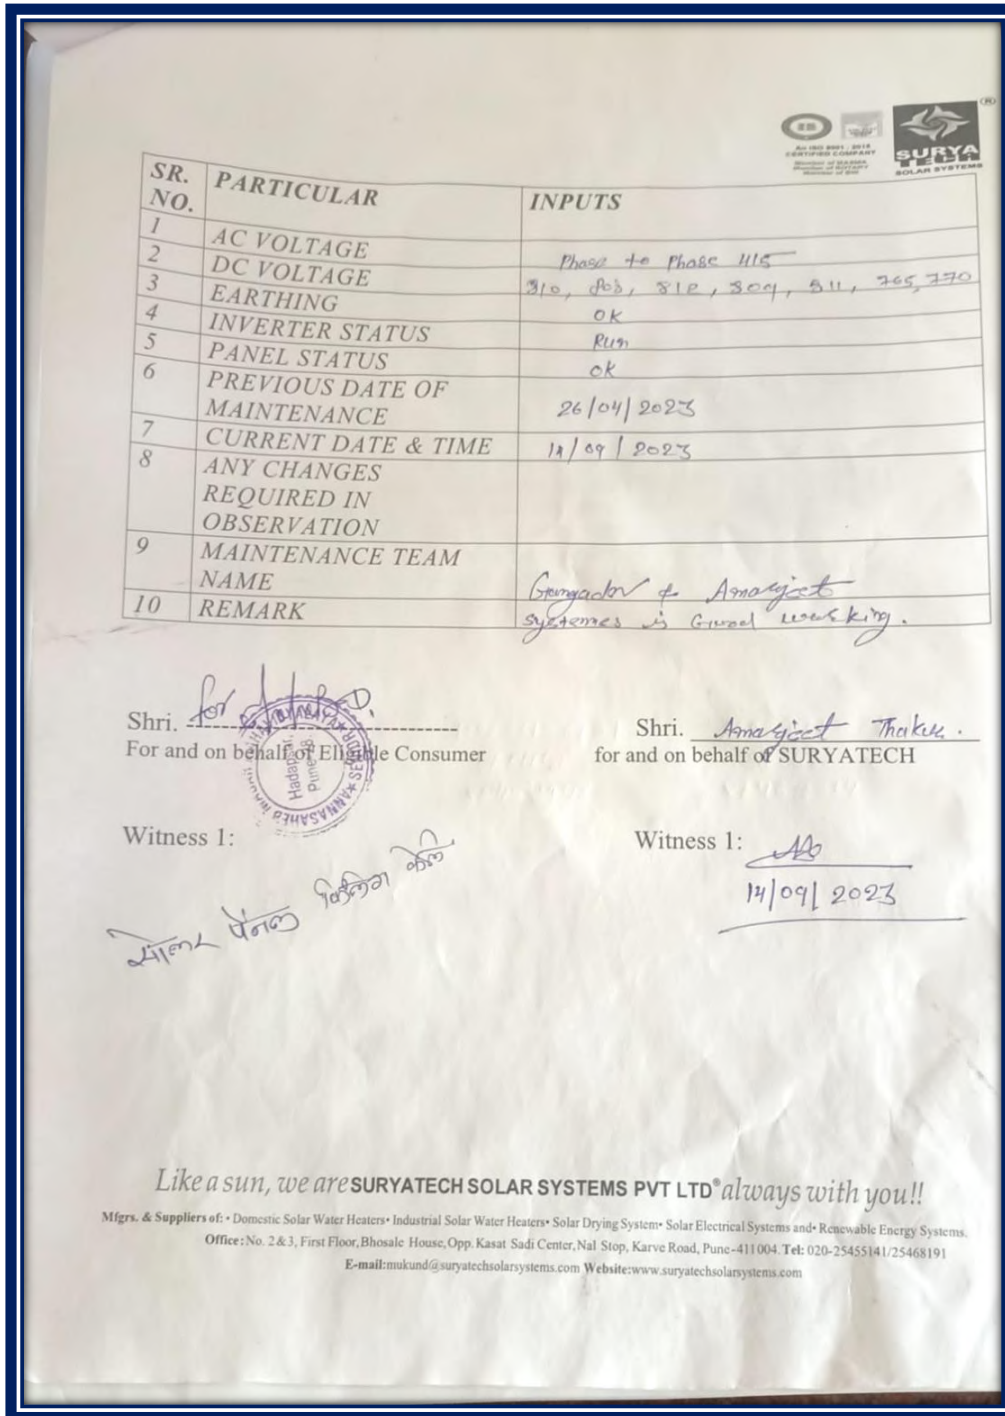 An ISO 9001 : 2015
CERTIFIED COMPANY
SURYA
TECH
SOLAR SYSTEMS
SR. NO. PARTICULAR INPUTS
1 AC VOLTAGE Phase to Phase 415
2 DC VOLTAGE 810, 803, 812, 809, 811, 765, 770
3 EARTHING OK
4 INVERTER STATUS Run
5 PANEL STATUS ok
6 PREVIOUS DATE OF
MAINTENANCE 26/04/2023
7 CURRENT DATE & TIME 14/09/2023
8 ANY CHANGES
REQUIRED IN
OBSERVATION
9 MAINTENANCE TEAM
NAME & Amarjeet
10 REMARK systemes is Good working.
Shri. for
For and on behalf of Eligible Consumer
Hadapsar,
Shri. Amarjeet Thakur.
for and on behalf of SURYATECH
Witness 1:
सोलर पॅनल
Witness 1:
14/09/2023
Like a sun, we are SURYATECH SOLAR SYSTEMS PVT LTD® always with you!!
Mfgrs. & Suppliers of: • Domestic Solar Water Heaters• Industrial Solar Water Heaters• Solar Drying System• Solar Electrical Systems and• Renewable Energy Systems.
Office: No. 2 & 3, First Floor, Bhosale House, Opp. Kasat Sadi Center, Nal Stop, Karve Road, Pune-411004. Tel: 020-25455141/25468191
E-mail:mukund@suryatechsolarsystems.com Website:www.suryatechsolarsystems.com